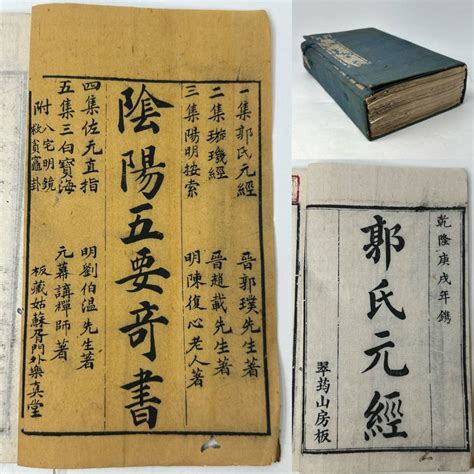 一集郭氏元經 晉郭璞先生著
二集璇璣經 晉趙載先生著
三集陽明按索 明陳復心老人著
陰陽五要竒書
四集佐元直指 明劉伯温先生著
五集三白寶海 元幕講禪師著
附 八宅明鏡
救貧竈卦
板藏姑蘇胥門外樂真堂
乾隆庚戌年鐫
郭氏元經
翠筠山房板